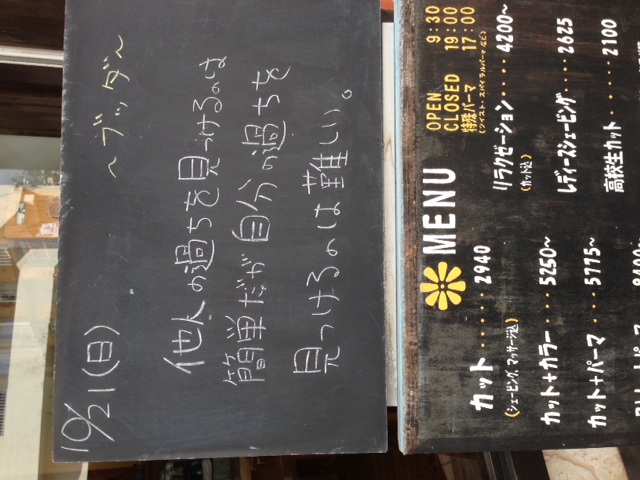 10/21(日)
〜ブッダ〜
他人の過ちを見つけるのは
簡単だが自分の過ちを
見つけるのは難しい。
MENU
OPEN 9:30
CLOSED 19:00
特殊パーマ 17:00
(ツイスト・スパイラルパーマ など)
カット・・・・・・2940
(シェービング、マッサージ込)
カット+カラー・・・・5250〜
カット+パーマ・・・5775〜
リラクゼーション・・・・4200〜
(カット込)
レディースシェービング・・・・2625
高校生カット・・・・・2100